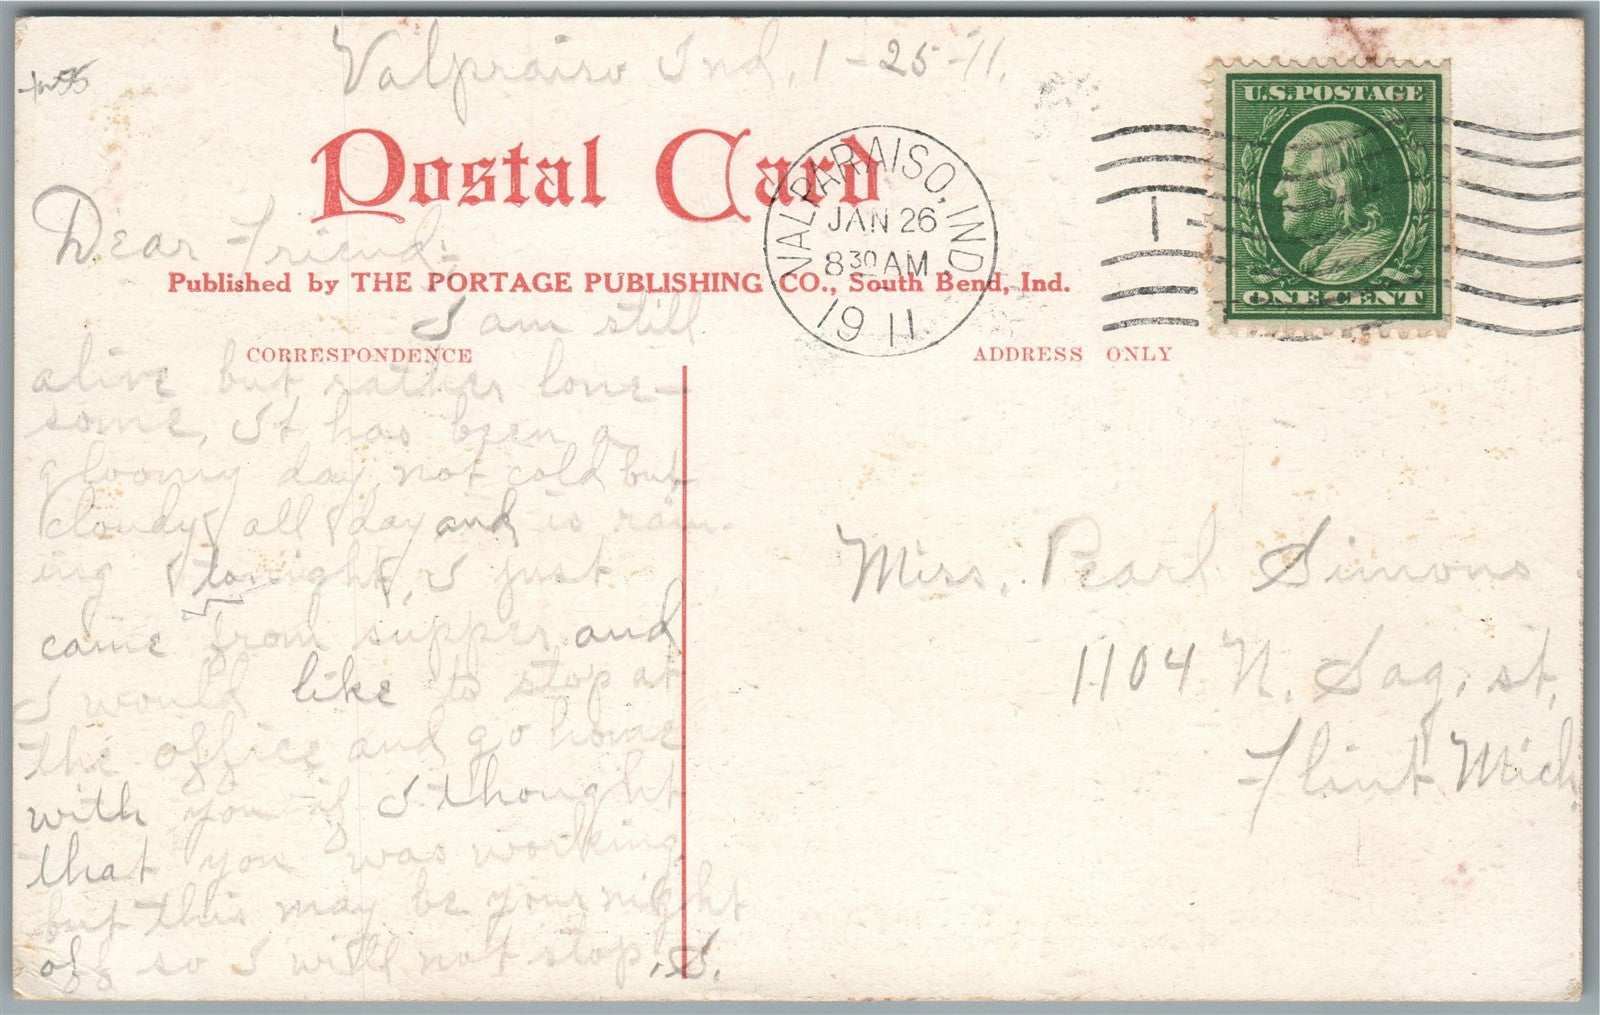 Valpraiso Ind, 1-25-11.
U.S. POSTAGE
ONE CENT
Postal Card
VALPARAISO, IND.
JAN 26
8 30 AM
1911
1
Dear Friend:-
Published by THE PORTAGE PUBLISHING CO., South Bend, Ind.
I am still
CORRESPONDENCE
ADDRESS ONLY
alive but rather lone-
some, It has been a
gloomy day, not cold but
cloudy all day and is rain-
ing tonight, I just
came from supper and
I would like to stop at
the office and go home
with you if I thought
that you was working
but this may be your night
off so I will not stop. S.
Miss. Pearl Simons
1104 N. Sag. st,
Flint Mich.